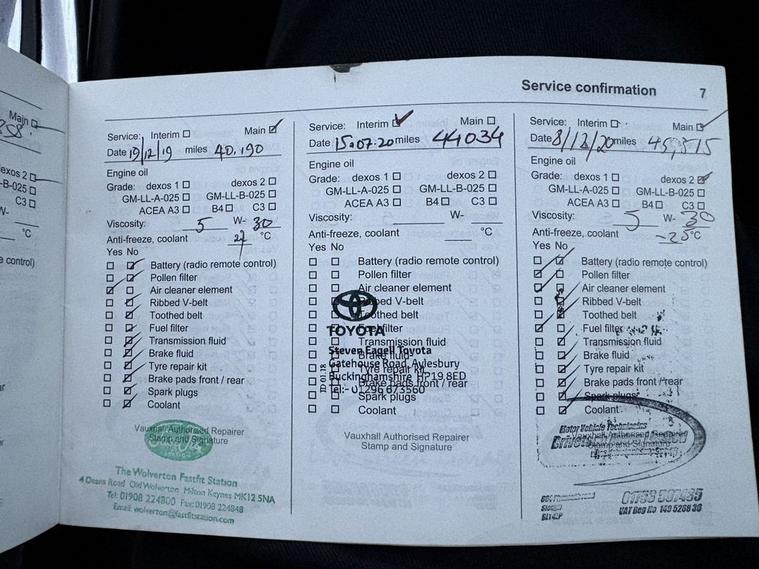 Service confirmation 7
Main
exos 2
-B-025
C3
W-
°C
e control)
Service: Interim Main
Date 19/12/19 miles 40,190
Engine oil
Grade: dexos 1 dexos 2
GM-LL-A-025 GM-LL-B-025
ACEA A3 B4 C3
Viscosity: 5 W- 30
Anti-freeze, coolant °C
Yes No
Battery (radio remote control)
Pollen filter
Air cleaner element
Ribbed V-belt
Toothed belt
Fuel filter
Transmission fluid
Brake fluid
Tyre repair kit
Brake pads front / rear
Spark plugs
Coolant
Vauxhall Authorised Repairer
Stamp and Signature
The Wolverton Fastfit Station
4 Deans Road Old Wolverton Milton Keynes MK12 5NA
Tel: 01908 224800 Fax: 01908 224848
Email: wolverton@fastfitstation.com
Service: Interim Main
Date 15.07.20 miles 44034
Engine oil
Grade: dexos 1 dexos 2
GM-LL-A-025 GM-LL-B-025
ACEA A3 B4 C3
Viscosity: W-
Anti-freeze, coolant °C
Yes No
Battery (radio remote control)
Pollen filter
Air cleaner element
Ribbed V-belt
Toothed belt
Fuel filter
TOYOTA
Steven Eagell Toyota
Brake fluid
Gatehouse Road, Aylesbury
Tyre repair kit
Buckinghamshire HP19 8ED
Brake pads front / rear
Tel:- 01296 673560
Spark plugs
Coolant
Vauxhall Authorised Repairer
Stamp and Signature
Service: Interim Main
Date 8/12/20 miles 45,515
Engine oil
Grade: dexos 1 dexos 2
GM-LL-A-025 GM-LL-B-025
ACEA A3 B4 C3
Viscosity: 5 W- 30
Anti-freeze, coolant -25°C
Yes No
Battery (radio remote control)
Pollen filter
Air cleaner element
Ribbed V-belt
Toothed belt
Fuel filter
Transmission fluid
Brake fluid
Tyre repair kit
Brake pads front / rear
Spark plugs
Coolant
Motor Vehicle Technicians
Vauxhall Authorised Repairer
Stamp and Signature
VAT Reg No